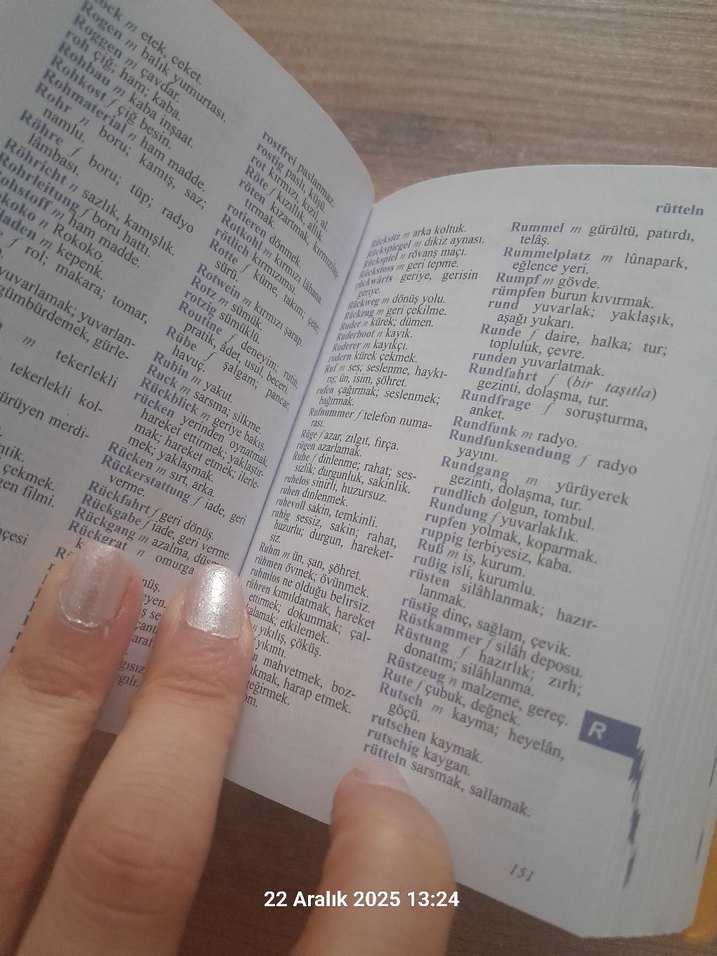 ock m etek, ceket.
Rogen m balık yumurtası.
Roggen m çavdar.
roh çiğ; ham; kaba.
Rohbau m kaba inşaat.
Rohkost f çiğ besin.
Rohmaterial n ham madde.
Rohr n boru; kamış, saz;
namlu.
Röhre f boru; tüp; radyo
lâmbası.
Röhricht n sazlık, kamışlık.
Rohrleitung f boru hattı.
ohstoff m ham madde.
okoko n Rokoko.
laden m kepenk.
f rol; makara; tomar,
yuvarlamak; yuvarlan-
gümbürdemek, gürle-
m tekerlekli
tekerlekli kol-
ürüyen merdi-
ntik.
çekmek.
gen filmi.
hçesi
rostfrei paslanmaz.
rostig paslı, küflü.
rot kırmızı, kızıl, al.
Röte f kızıllık, allık.
röten kızartmak, kırmızılaş-
tırmak.
rotieren dönmek.
Rotkohl m kırmızı lâhana.
rötlich kırmızımsı.
Rotte f küme, takım, çete,
sürü.
Rotwein m kırmızı şarap.
Rotz m sümük.
rotzig sümüklü.
Routine f deneyim; rutin,
pratik, âdet, usul, beceri.
Rübe f şalgam; pancar,
havuç.
Rubin m yakut.
Ruck m sarsma; silkme.
Rückblick m geriye bakış.
rücken yerinden oynatmak,
hareket ettirmek; yaklaştır-
mak; hareket etmek; ilerle-
mek, yaklaşmak.
Rücken m sırt, arka.
Rückerstattung f iade, geri
verme.
Rückfahrt f geri dönüş.
Rückgabe f iade, geri verme.
Rückgang m azalma, düş
Rückgrat n omurga
k
nüş,
eyen.
ş se
çanta
araf
gısız
ygılı.
rütteln
Rücksitz m arka koltuk.
Rückspiegel m dikiz aynası.
Rückspiel n rövanş maçı.
Rückstoss m geri tepme.
rückwärts geriye, gerisin
geriye.
Rückweg m dönüş yolu.
Rückzug m geri çekilme.
Ruder n kürek; dümen.
Ruderboot n kayık.
Ruderer m kayıkçı.
rudern kürek çekmek.
Ruf m ses; seslenme, haykı-
rış; ün, isim, şöhret.
rufen çağırmak; seslenmek;
bağırmak.
Rufnummer f telefon numa-
rası.
Rüge f azar, zılgıt, fırça.
rügen azarlamak.
Ruhe f dinlenme; rahat; ses-
sizlik; durgunluk, sakinlik.
ruhelos sinirli, huzursuz.
ruhen dinlenmek.
ruhevoll sakin, temkinli.
ruhig sessiz, sakin; rahat,
huzurlu; durgun, hareket-
siz.
Ruhm m ün, şan, şöhret.
rühmen övmek; övünmek.
ruhmlos ne olduğu belirsiz.
rühren kımıldatmak, hareket
ettirmek; dokunmak; çal-
kalamak; etkilemek.
n yıkılış, çöküş.
yıkıntı.
n mahvetmek, boz-
ıkmak, harap etmek.
geğirmek.
om.
Rummel m gürültü, patırdı,
telâş.
Rummelplatz m lûnapark,
eğlence yeri.
Rumpf m gövde.
rümpfen burun kıvırmak.
rund yuvarlak; yaklaşık,
aşağı yukarı.
Runde f daire, halka; tur;
topluluk, çevre.
runden yuvarlatmak.
Rundfahrt f (bir taşıtla)
gezinti, dolaşma, tur.
Rundfrage f soruşturma,
anket.
Rundfunk m radyo.
Rundfunksendung f radyo
yayını.
Rundgang m yürüyerek
gezinti, dolaşma, tur.
rundlich dolgun, tombul.
Rundung f yuvarlaklık.
rupfen yolmak, koparmak.
ruppig terbiyesiz, kaba.
Ruß m is, kurum.
rußig isli, kurumlu.
rüsten silâhlanmak; hazır-
lanmak.
rüstig dinç, sağlam, çevik.
Rüstkammer f silâh deposu.
Rüstung f hazırlık; zırh;
donatım; silâhlanma.
Rüstzeug n malzeme, gereç.
Rute f çubuk, değnek.
Rutsch m kayma; heyelân,
göçü.
rutschen kaymak.
rutschig kaygan.
rütteln sarsmak, sallamak.
R
151
22 Aralık 2025 13:24